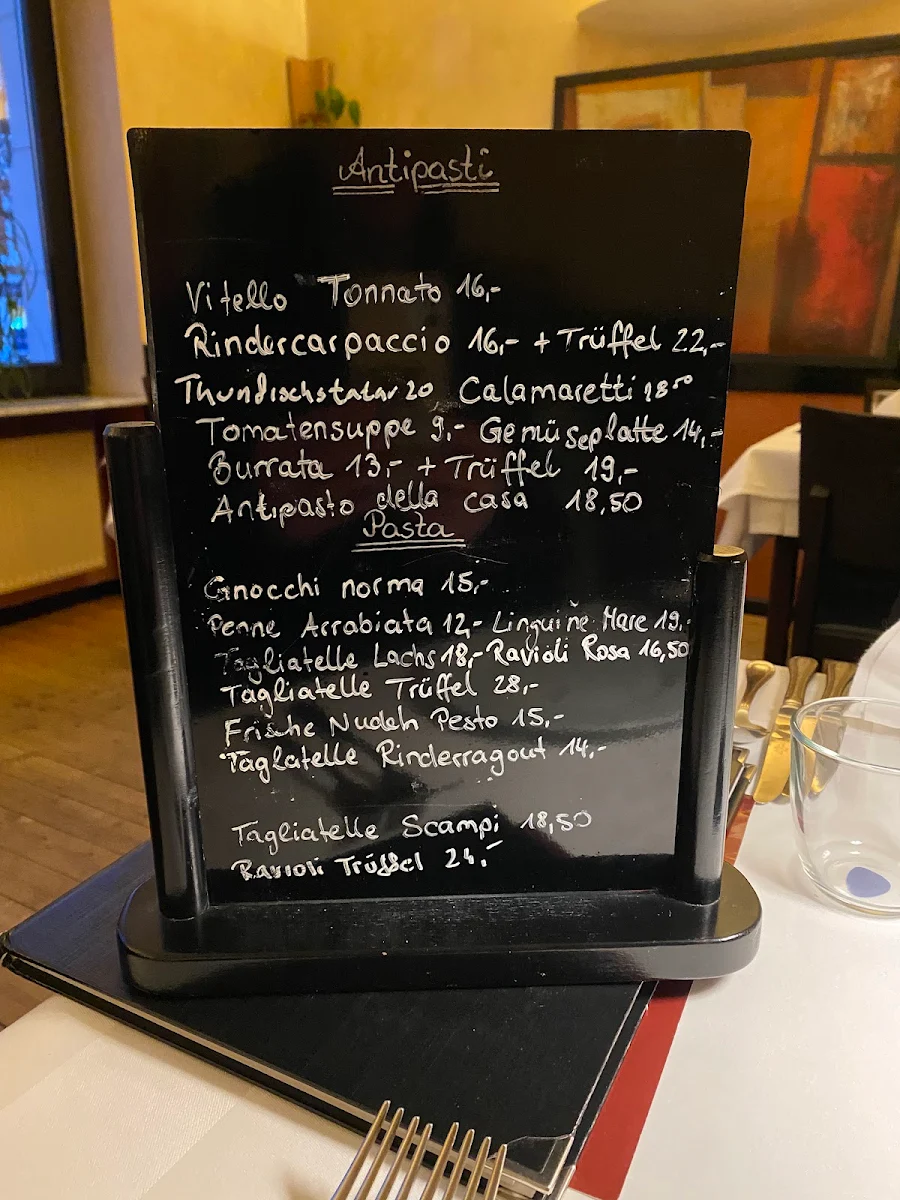 Antipasti
Vitello Tonnato 16,-
Rindercarpaccio 16,- + Trüffel 22,-
Thunfischstatar 20 Calamaretti 18⁵⁰
Tomatensuppe 9,- Gemüseplatte 14,-
Burrata 13,- + Trüffel 19,-
Antipasto della casa 18,50
Pasta
Gnocchi norma 15,-
Penne Arrabiata 12,- Linguine Mare 19,-
Tagliatelle Lachs 18,- Ravioli Rosa 16,50
Tagliatelle Trüffel 28,-
Frische Nudeln Pesto 15,-
Taglatelle Rinderragout 14,-
Tagliatelle Scampi 18,50
Ravioli Trüffel 24,-